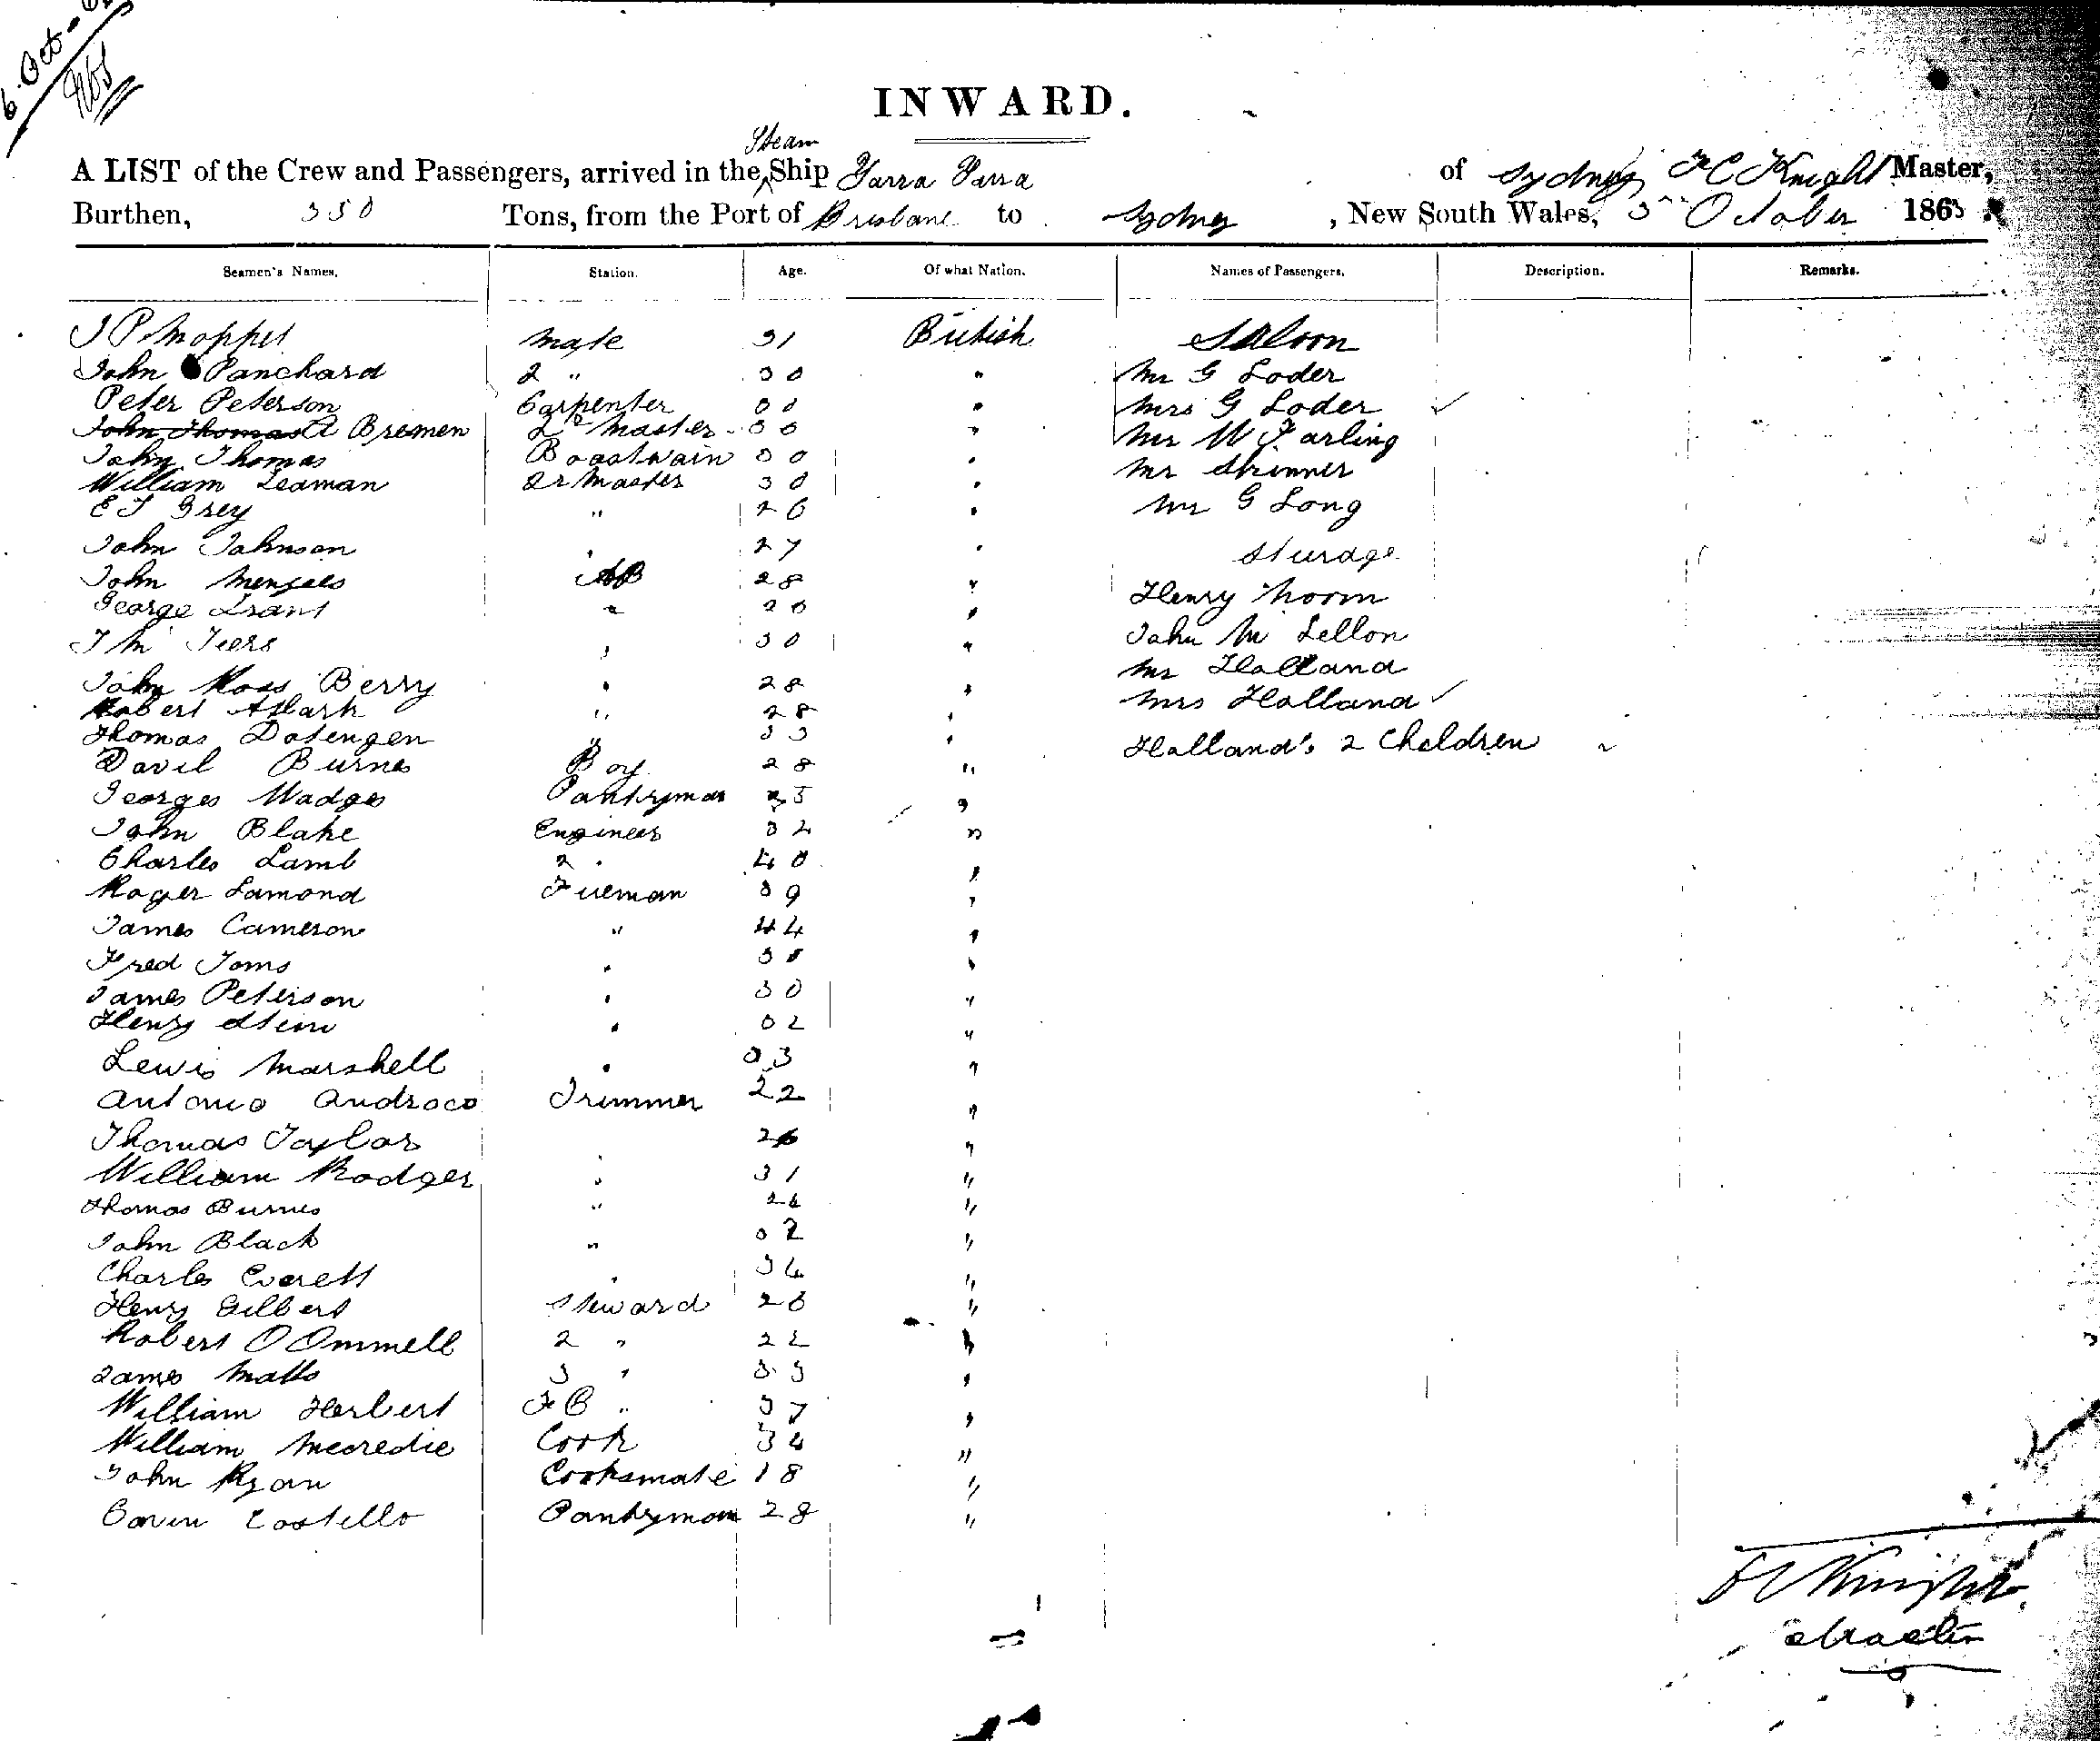 6 Oct
INWARD.
Steam
A LIST of the Crew and Passengers, arrived in the Ship Yarra Yarra of Sydney F C Knight Master,
Burthen, 350 Tons, from the Port of Brisbane to Sydney, New South Wales, October 186
Seamen's Names. Station. Age. Of what Nation. Names of Passengers. Description. Remarks.
J P Moppet Mate 31 British Saloon
John Panchard 2 " 30 " Mr G Loder
Peter Peterson Carpenter " Mrs G Loder
John Thomas A Bremen Master " Mr W Farling
John Thomas Boastwain 30 " Mr Skinner
William Leaman Qr Master 30 "
E J Grey " 26 " Mr G Long
John Johnson " 27 " Sturage
John Menzees AB 28 "
George Grant " " Henry Moom
J M Teers " 30 " John Mc Lellon
Mr Holland
John Ross Berry " 28 " Mrs Holland
Robert " 28 "
Thomas Dotengen " 33 " Holland's 2 Children
David Burnes Boy 28 "
Georges Madges Pantryman 25 "
John Blake Engineer 32 "
Charles Lamb 2 " 40 "
Roger Lamond Fireman 39 "
James Cameron " 44 "
Fred Toms " "
James Peterson " 30 "
Henry " 32 "
Lewis Marshell " 33 "
Antonio Androco Trimmer 22 "
Thomas Taylor " 26 "
William Rodger " 31 "
Thomas Burnes " 24 "
John Black " 32 "
Charles Everett " 34 "
Henry Gilbert Steward "
Robert O Ommell 2 " "
James Matts 3 " 33 "
William Herbert F C " 37 "
William Mecredie Cook 34 "
John Ryan Cooksmate 18 "
Costello Pantryman 28 "
F C Knight
Master